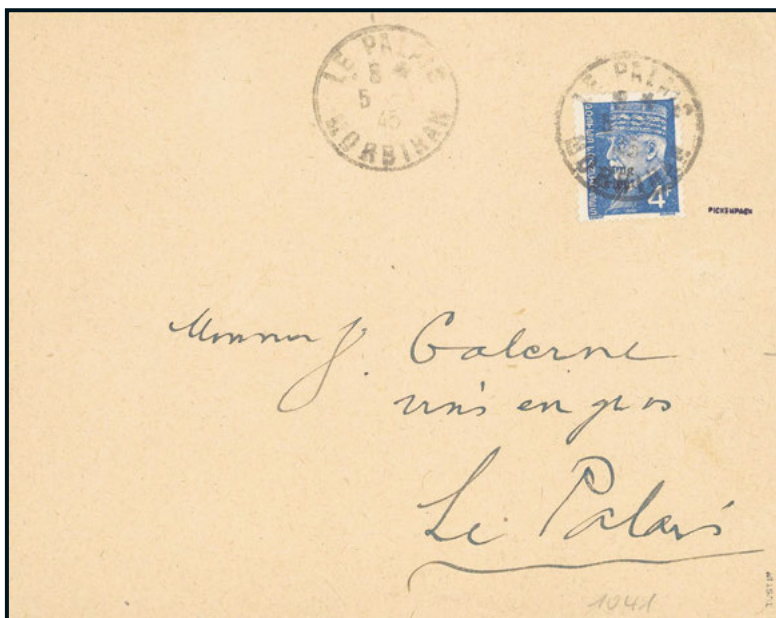 LE PALAIS
8 *
5
45
MORBIHAN
LE PALAIS
MORBIHAN
4F
PICKENPACK
Monsieur J. Galerne
vins en gros
Le Palais
1041